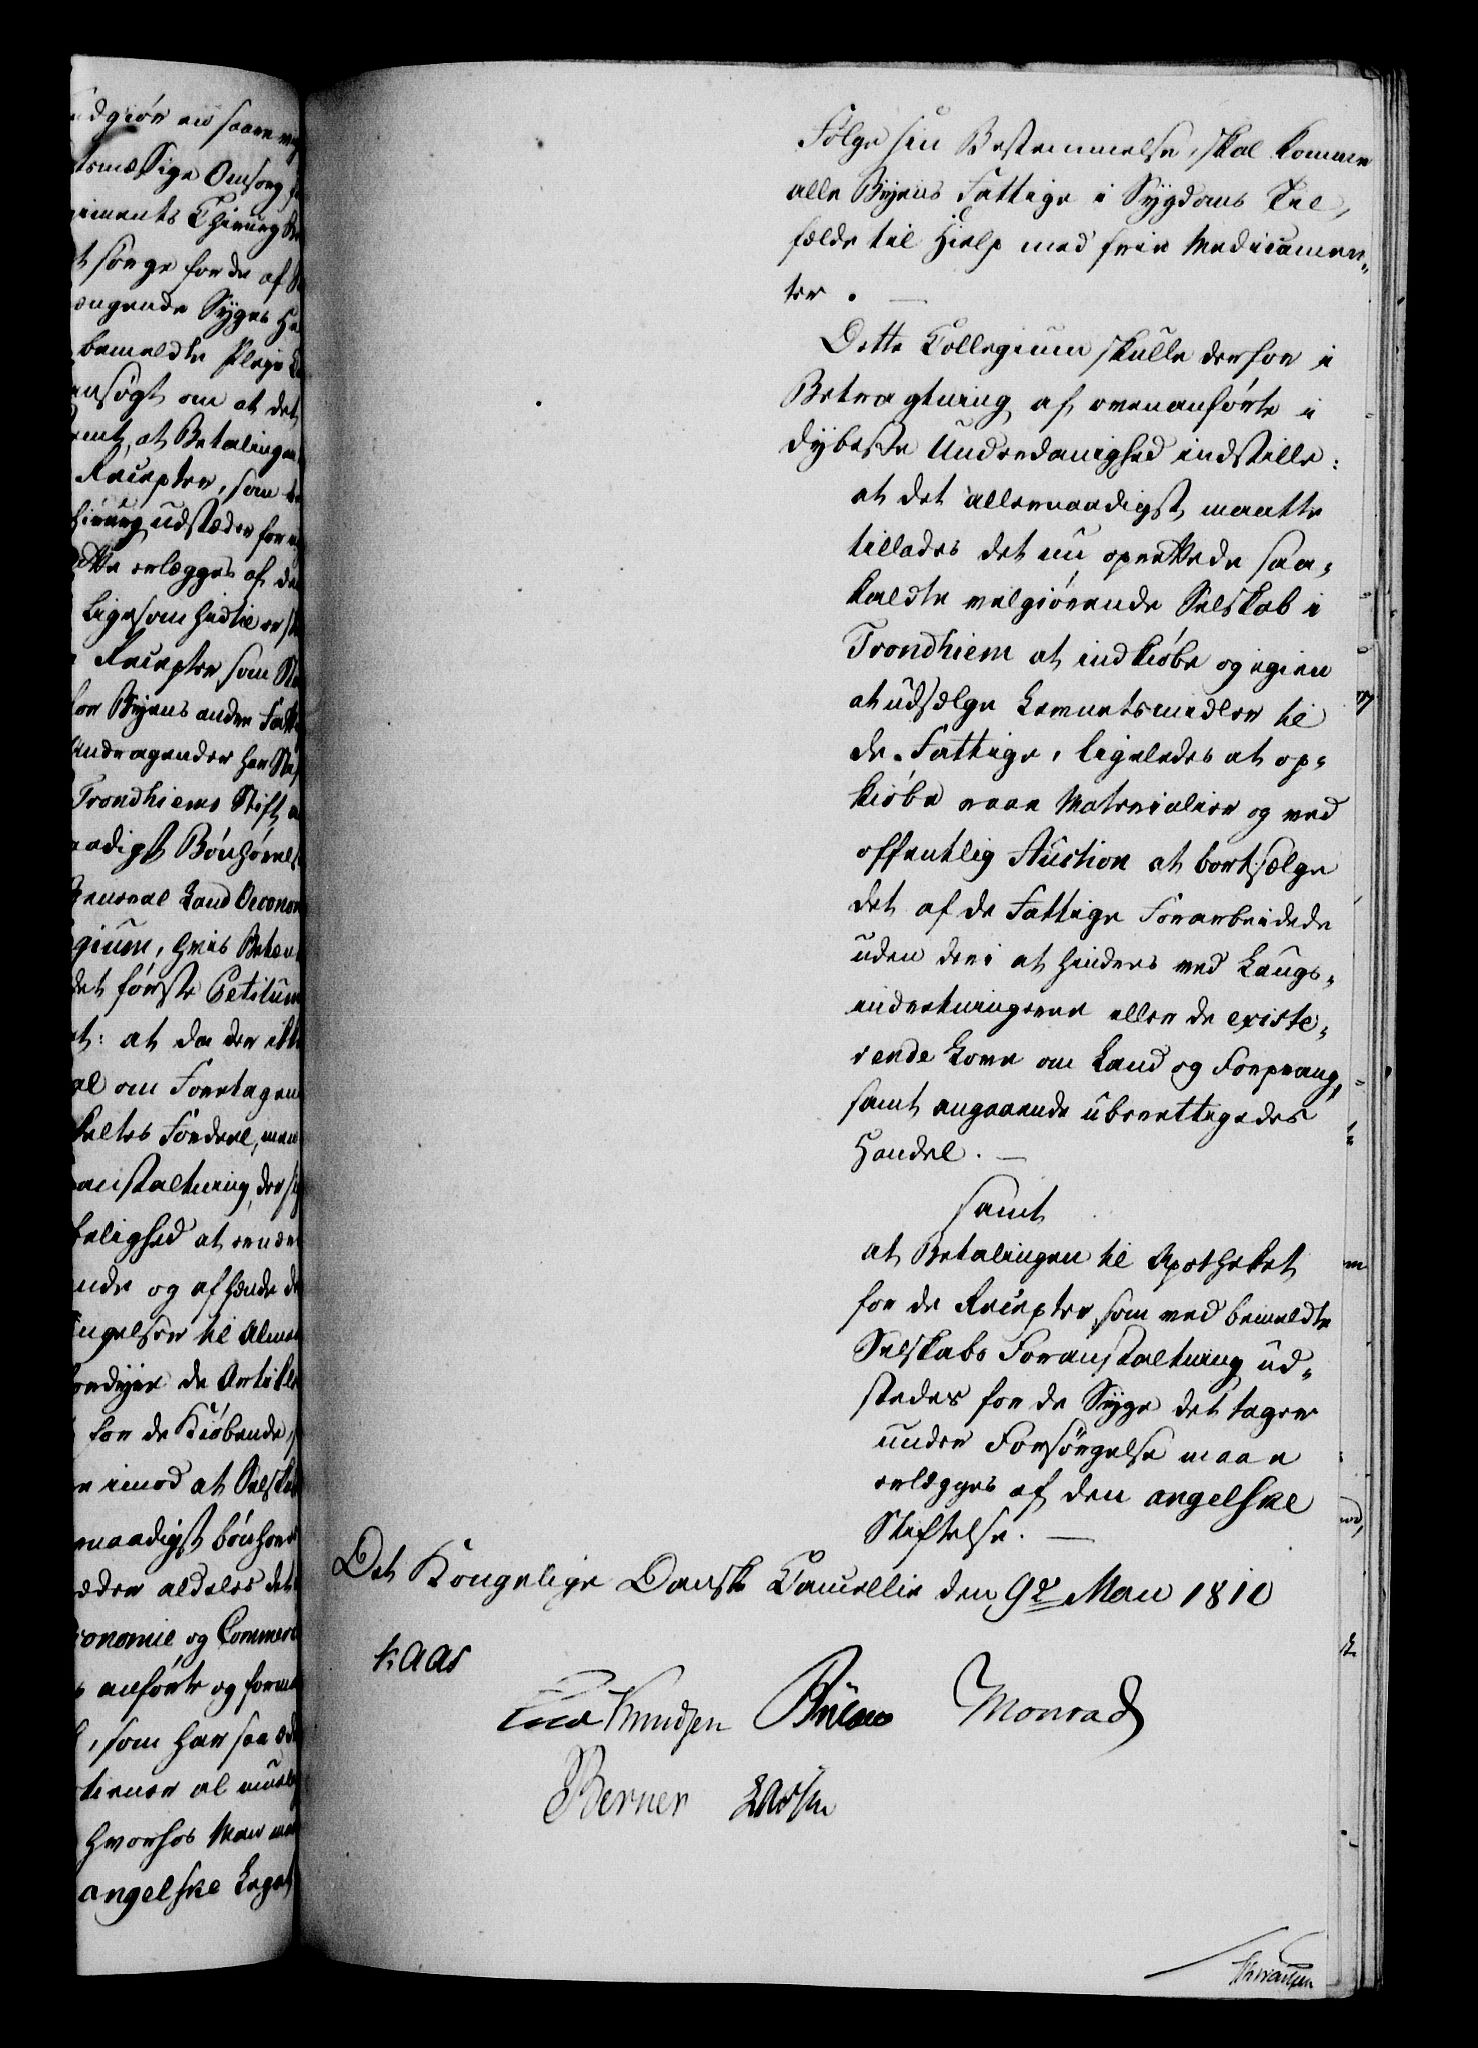 udgiør en saare
tsmæssige Omsorg
giments Chirurg
t sørge for de af
ængende Syges
bemeldte Pleje
ansøgt om at det
emt, at Betalingen
Recepter, som
hirurg udstæder for
erlægges af de
Ligesom hidtil er
Recepter som
for Byens andre
Andragender har
Trondhiems Stift
aadigst Bønhørel
General Land Oeconom
gium, hvis Betæn
det første Petitum
t: at da der ikke
al om Foretagen
keltes Fordeel, men
anstaltning, der
kelighed at
nde og afhænde de
ngelser til Almeen
fordyre de Artikle
for de Kiøbende,
r imod at Selskab
naadigst bønhøres
eder aldeles det
conomie og Commerce
anførte og
, som har saa
tioner al muelig
hvorhos Man
angelske Legat
Følge sin Bestemmelse, skal komme
alle Byens Fattige i Sygdoms Til,
fælde til Hielp med frie Medicamen,
ter. —
Dette Collegium skulle derfor i
Betragtning af ovenanførte i
dybeste Underdanighed indstille:
at det allernaadigst maatte
tillades det nu oprettede saa,
kaldte velgiørende Selskab i
Trondhiem at indkiøbe og igien
at udsælge Levnetsmidler til
de Fattige, ligeledes at op,
kiøbe raae Materialier og ved
offentlig Auction at bortsælge
det af de Fattige Forarbeidede
uden deri at hindres ved Laugs,
indretningerne eller de existe,
rende Love om Land og Forprang,
samt angaaende uberettigedes
Handel. —
samt
at Betalingen til Apotheket
for de Recepter, som ved bemeldte
Selskabs Foranstaltning ud,
stedes for de Syge det tager
under Forsørgelse maae
erlægges af den angelske
Stiftelse. —
Det Kongelige Danske Cancellie den 9de Mai 1810
Kaas
Knudsen Bülow Monrad
Berner Lassen